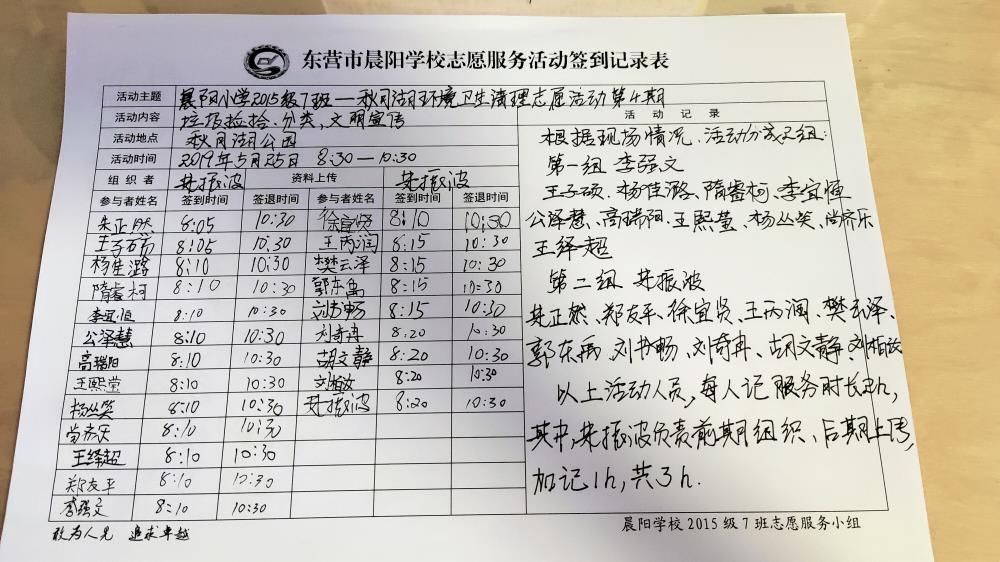 东营市晨阳学校志愿服务活动签到记录表
活动主题 晨阳小学2015级7班—秋月湖环境卫生清理志愿活动第4期
活动内容 垃圾捡拾、分类,文明宣传
活动地点 秋月湖公园
活动时间 2019年5月25日 8:30—10:30
组织者 振波 资料上传 振波
参与者姓名 签到时间 签退时间 参与者姓名 签到时间 签退时间
正然 8:05 10:30 徐宜贤 8:10 10:30
王子硕 8:05 10:30 王丙润 8:15 10:30
杨佳潞 8:10 10:30 樊云泽 8:15 10:30
隋睿柯 8:10 10:30 郭东禹 8:15 10:30
李宜恒 8:10 10:30 刘书畅 8:15 10:30
公泽慧 8:10 10:30 刘奇冉 8:20 10:30
高瑞阳 8:10 10:30 胡文静 8:20 10:30
王熙莹 8:10 10:30 刘柏 8:20 10:30
杨丛笑 8:10 10:30 振波 8:20 10:30
尚齐乐 8:10 10:30
王绎超 8:10 10:30
郑友平 8:10 10:30
李强文 8:10 10:30
活动记录
根据现场情况,活动分为2组:
第一组 李强文
王子硕、杨佳潞、隋睿柯、李宜恒
公泽慧、高瑞阳、王熙莹、杨丛笑、尚齐乐
王绎超
第二组 振波
正然、郑友平、徐宜贤、王丙润、樊云泽、
郭东禹、刘书畅、刘奇冉、胡文静、刘柏
以上活动人员,每人记服务时长2h,
其中,振波负责前期组织、后期上传,
加记1h,共3h.
敢为人先 追求卓越
晨阳学校2015级7班志愿服务小组